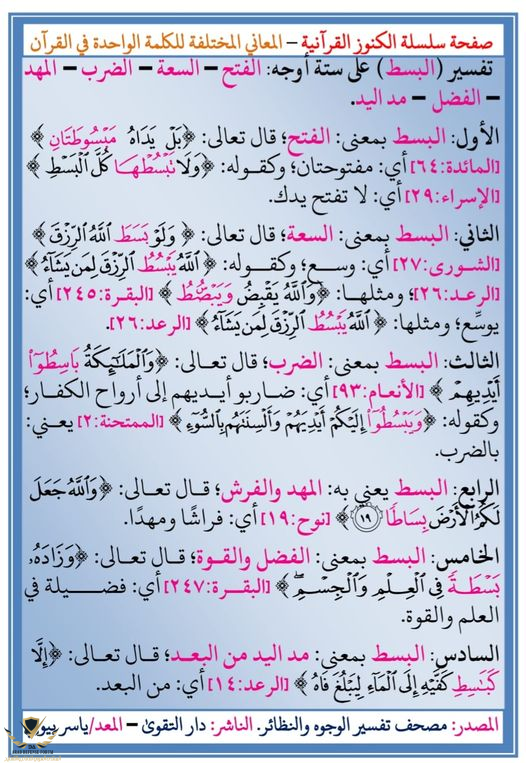 صفحة سلسلة الكنوز القرآنية – المعاني المختلفة للكلمة الواحدة في القرآن
تفسير (البسط) على ستة أوجه: الفتح – السعة – الضرب – المهد
– الفضل – مد اليد.
الأول: البسط بمعنى: الفتح؛ قال تعالى: ﴿بَلْ يَدَاهُ مَبْسُوطَتَانِ﴾
[المائدة:٦٤] أي: مفتوحتان؛ وكقوله: ﴿وَلَا تَبْسُطْهَا كُلَّ الْبَسْطِ﴾
[الإسراء:٢٩] أي: لا تفتح يدك.
الثاني: البسط بمعنى: السعة؛ قال تعالى: ﴿وَلَوْ بَسَطَ اللَّهُ الرِّزْقَ﴾
[الشورى:٢٧] أي: وسع؛ وكقوله: ﴿اللَّهُ يَبْسُطُ الرِّزْقَ لِمَن يَشَاءُ﴾
[الرعد:٢٦]؛ ومثلها: ﴿وَاللَّهُ يَقْبِضُ وَيَبْصُطُ﴾ [البقرة:٢٤٥] أي:
يوسِّع؛ ومثلها: ﴿اللَّهُ يَبْسُطُ الرِّزْقَ لِمَن يَشَاءُ﴾ [الرعد:٢٦].
الثالث: البسط بمعنى: الضرب؛ قال تعالى: ﴿وَالْمَلَائِكَةُ بَاسِطُوا
أَيْدِيهِمْ﴾ [الأنعام:٩٣] أي: ضاربو أيديهم إلى أرواح الكفار؛
وكقوله: ﴿وَيَبْسُطُوا إِلَيْكُمْ أَيْدِيَهُمْ وَأَلْسِنَتَهُم بِالسُّوءِ﴾ [الممتحنة:٢] يعني:
بالضرب.
الرابع: البسط يعني به: المهد والفرش؛ قال تعالى: ﴿وَاللَّهُ جَعَلَ
لَكُمُ الْأَرْضَ بِسَاطًا ١٩﴾ [نوح:١٩] أي: فراشًا ومهدًا.
الخامس: البسط بمعنى: الفضل والقوة؛ قال تعالى: ﴿وَزَادَهُ
بَسْطَةً فِي الْعِلْمِ وَالْجِسْمِ ۖ﴾ [البقرة:٢٤٧] أي: فضيلة في
العلم والقوة.
السادس: البسط بمعنى: مد اليد من البعد؛ قال تعالى: ﴿إِلَّا
كَبَاسِطِ كَفَّيْهِ إِلَى الْمَاءِ لِيَبْلُغَ فَاهُ﴾ [الرعد:١٤] أي: من البعد.
المصدر: مصحف تفسير الوجوه والنظائر. الناشر: دار التقوى – المعد/ياسر بيومي